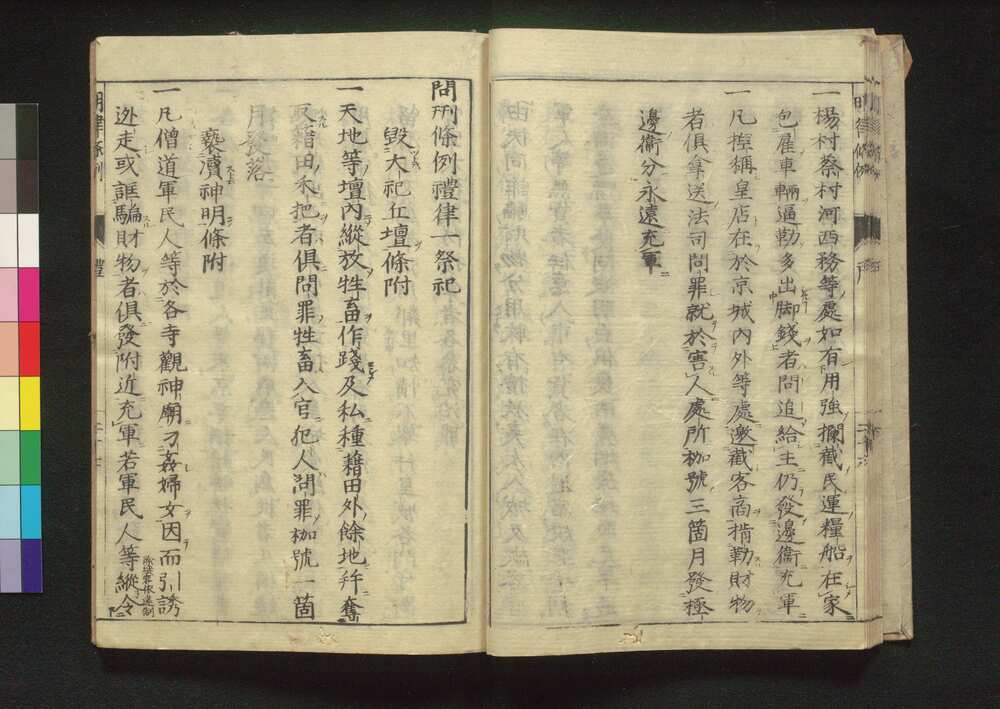 一楊村蔡村河西務等處如有用強攔截民運糧船在家
包雇車輛逼勒多出脚錢者問追給主仍發邊衞充軍
一凡搃稱皇店在於京城內外等處邀截客商掯勒財物
者俱拿送法司問罪就於害人處所枷號三箇月發極
邊衞分永遠充軍
問刑條例禮律一祭祀
毀大祀丘壇條附
一天地等壇內縱放牲畜作踐及私種藉田外餘地并奪
取藉田禾把者俱問罪牲畜入官犯人問罪枷號一箇
月發落
褻瀆神明條附
一凡僧道軍民人等於各寺觀神廟刁姦婦女因而引誘
迯走或誆騙財物者俱發附近充軍若軍民人等縱令
明律條例
禮